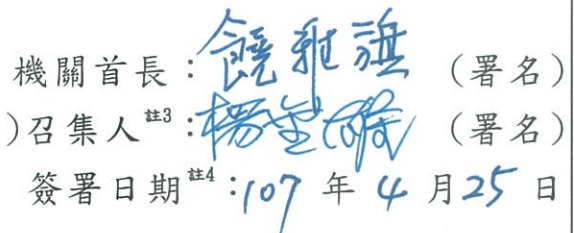 機關首長：饒雅旗 (署名)
)召集人註3：楊 (署名)
簽署日期註4：107 年 4 月 25 日